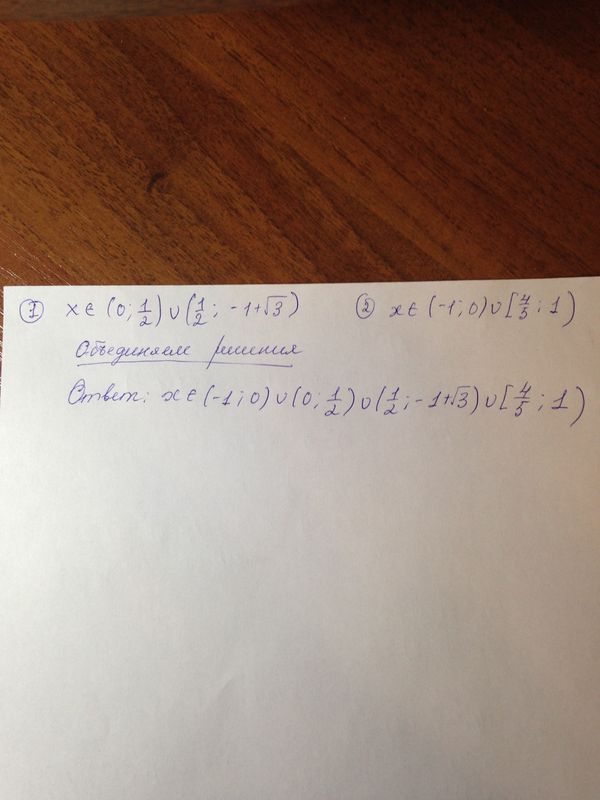 ① x ∈ (0; 1/2) ∪ (1/2; -1+√3) ② x ∈ (-1; 0) ∪ [4/5; 1)
Объединяем решения
Ответ: x ∈ (-1; 0) ∪ (0; 1/2) ∪ (1/2; -1+√3) ∪ [4/5; 1)